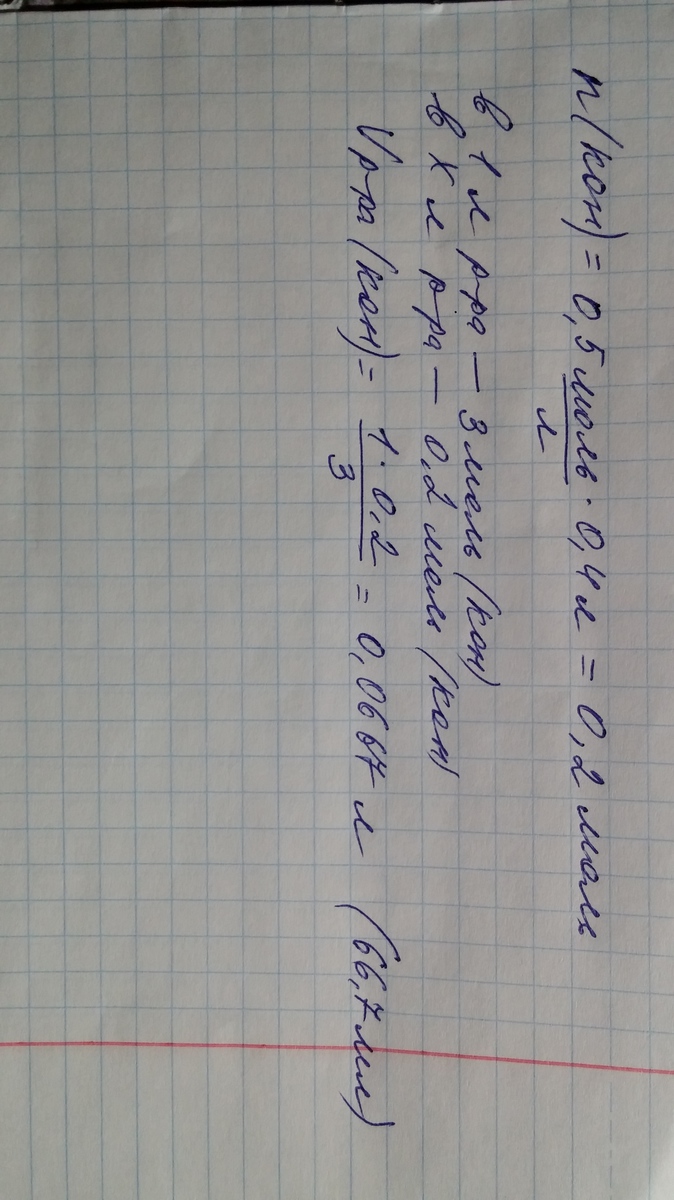 n(КОН) = 0,5 моль/л · 0,4 л = 0,2 моль
в 1 л р-ра — 3 моль (КОН)
в х л р-ра — 0,2 моль (КОН)
Vр-ра (КОН) = 1 · 0,2 / 3 = 0,0667 л (66,7 мл)